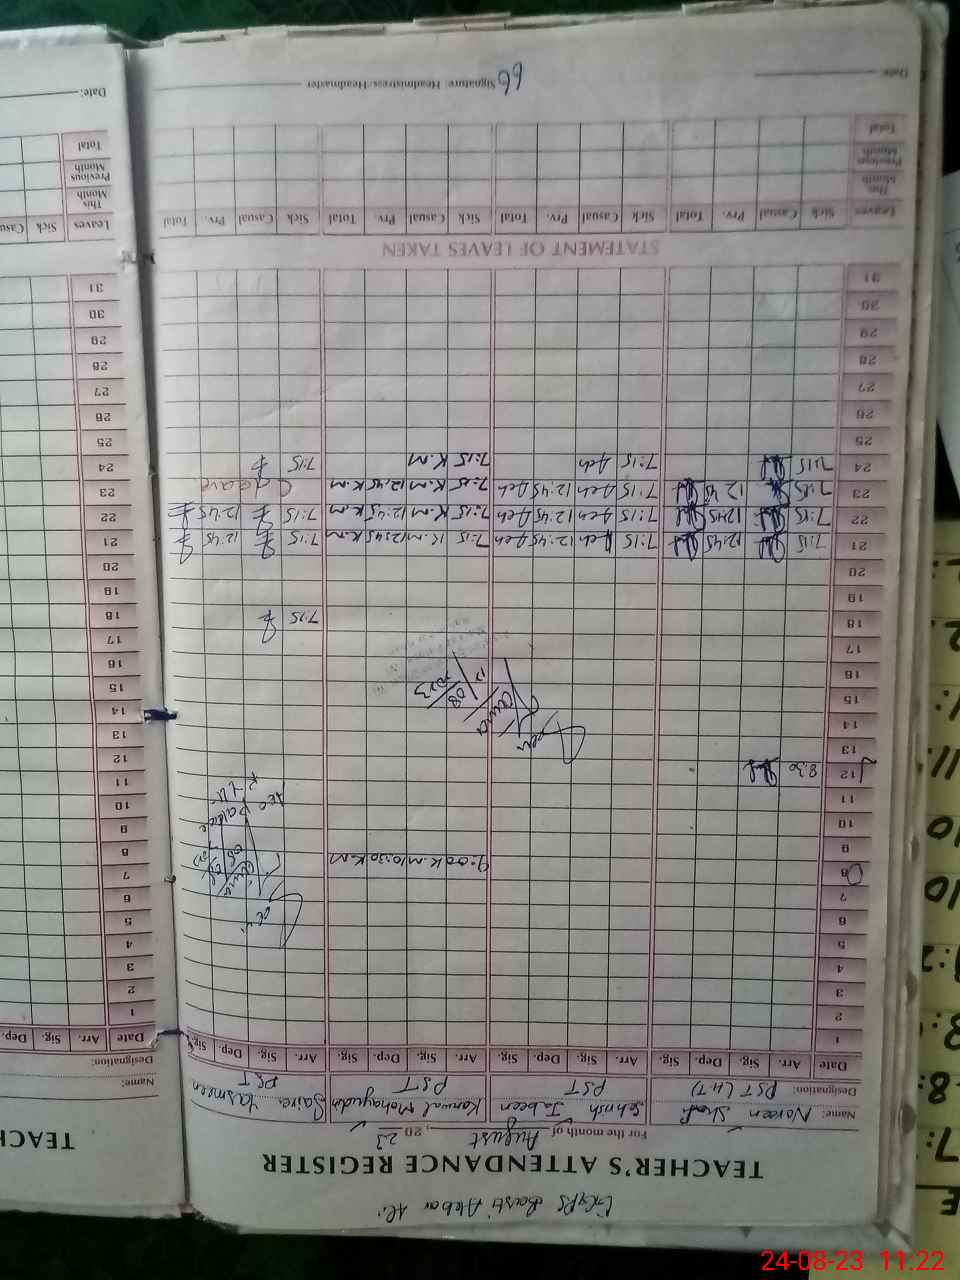 GGPS Basti Akbar Ali
TEACHER'S ATTENDANCE REGISTER
For the month of August, 20 23
Name: Noreen Shafi Sehrish Jabeen Kanwal Mohayudin Saira Yasmeen
Designation: PST (H.T) PST PST PST
Date Arr. Sig. Dep. Sig. Arr. Sig. Dep. Sig. Arr. Sig. Dep. Sig. Arr. Sig. Dep. Sig.
1
2
3
4
5
6
7
8 9:00 K.M 10:30 K.M
9
10
11
12 8:30
13
14
15
16
17
18 7:15
19
20
21 7:15 12:45 7:15 Jch 12:45 Jch 7:15 K.M 12:45 K.M 7:15 12:45
22 7:15 12:45 7:15 Jch 12:45 Jch 7:15 K.M 12:45 K.M 7:15 12:45
23 7:15 12:45 7:15 Jch 12:45 Jch 7:15 K.M 12:45 K.M C leave
24 7:15 7:15 Jch 7:15 K.M 7:15
25
26
27
28
29
30
31
STATEMENT OF LEAVES TAKEN
Leaves Sick Casual Prv. Total Sick Casual Prv. Total Sick Casual Prv. Total Sick Casual Prv. Total
This Month
Previous Month
Total
Date: Signature: Headmistress/Headmaster
66
TEACH
Name:
Designation:
Date Arr. Sig. Dep.
1
2
3
4
5
6
7
8
9
10
11
12
13
14
15
16
17
18
19
20
21
22
23
24
25
26
27
28
29
30
31
Leaves Sick Casu
This Month
Previous Month
Total
Date:
24-08-23 11:22